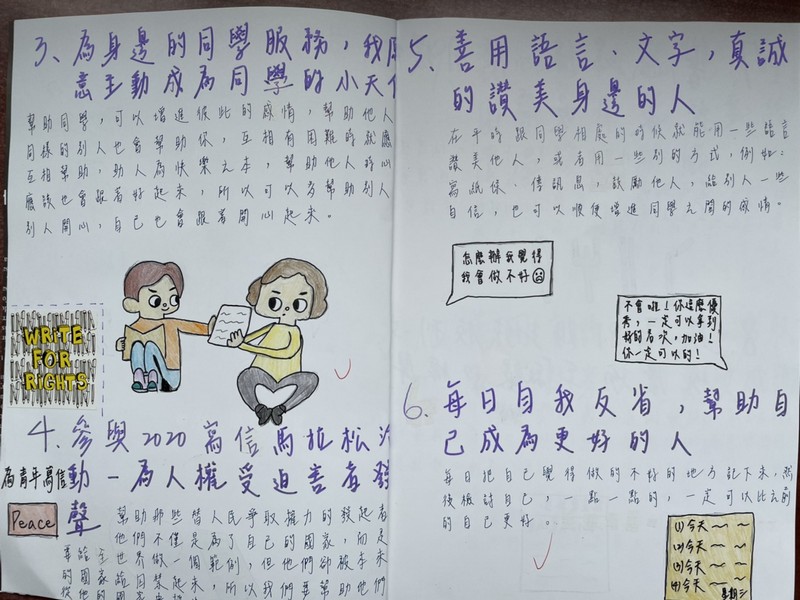 3、為身邊的同學服務，我
意主動成為同學的小天
幫助同學，可以增進彼此的感情，幫助他人
同樣的別人也會幫助你，互相有困難時就應
互相幫助，助人為快樂之本，幫助他人時心
應該也會跟著好起來，所以可以多幫助別人
別人開心，自己也會跟著開心起來。
WRITE
FOR
RIGHTS
4、參與2020寫信馬拉松活
為青年寫信
動－為人權受迫害者發
Peace
聲
幫助那些替人民爭取權力的發起者
他們不僅是為了自己的國家，而是
世界做一個範例，但他們卻被本來
5、善用語言、文字，真誠
的讚美身邊的人
在平時跟同學相處的時候就能用一些語言
讚美他人，或者用一些別的方式，例如：
寫紙條、傳訊息，鼓勵他人，給別人一些
自信，也可以順便增進同學之間的感情。
怎麼辦我覺得
我會做不好
不會啦！你這麼優
秀，一定可以拿到
好的名次，加油！
你一定可以的！
6、每日自我反省，幫助自
己成為更好的人
每日把自己覺得做的不好的地方記下來，然
後檢討自己，一點一點的，一定可以比以前
的自己更好。
(1)今天～～
(2)今天～～
(3)今天～～
(4)今天～～
星期三